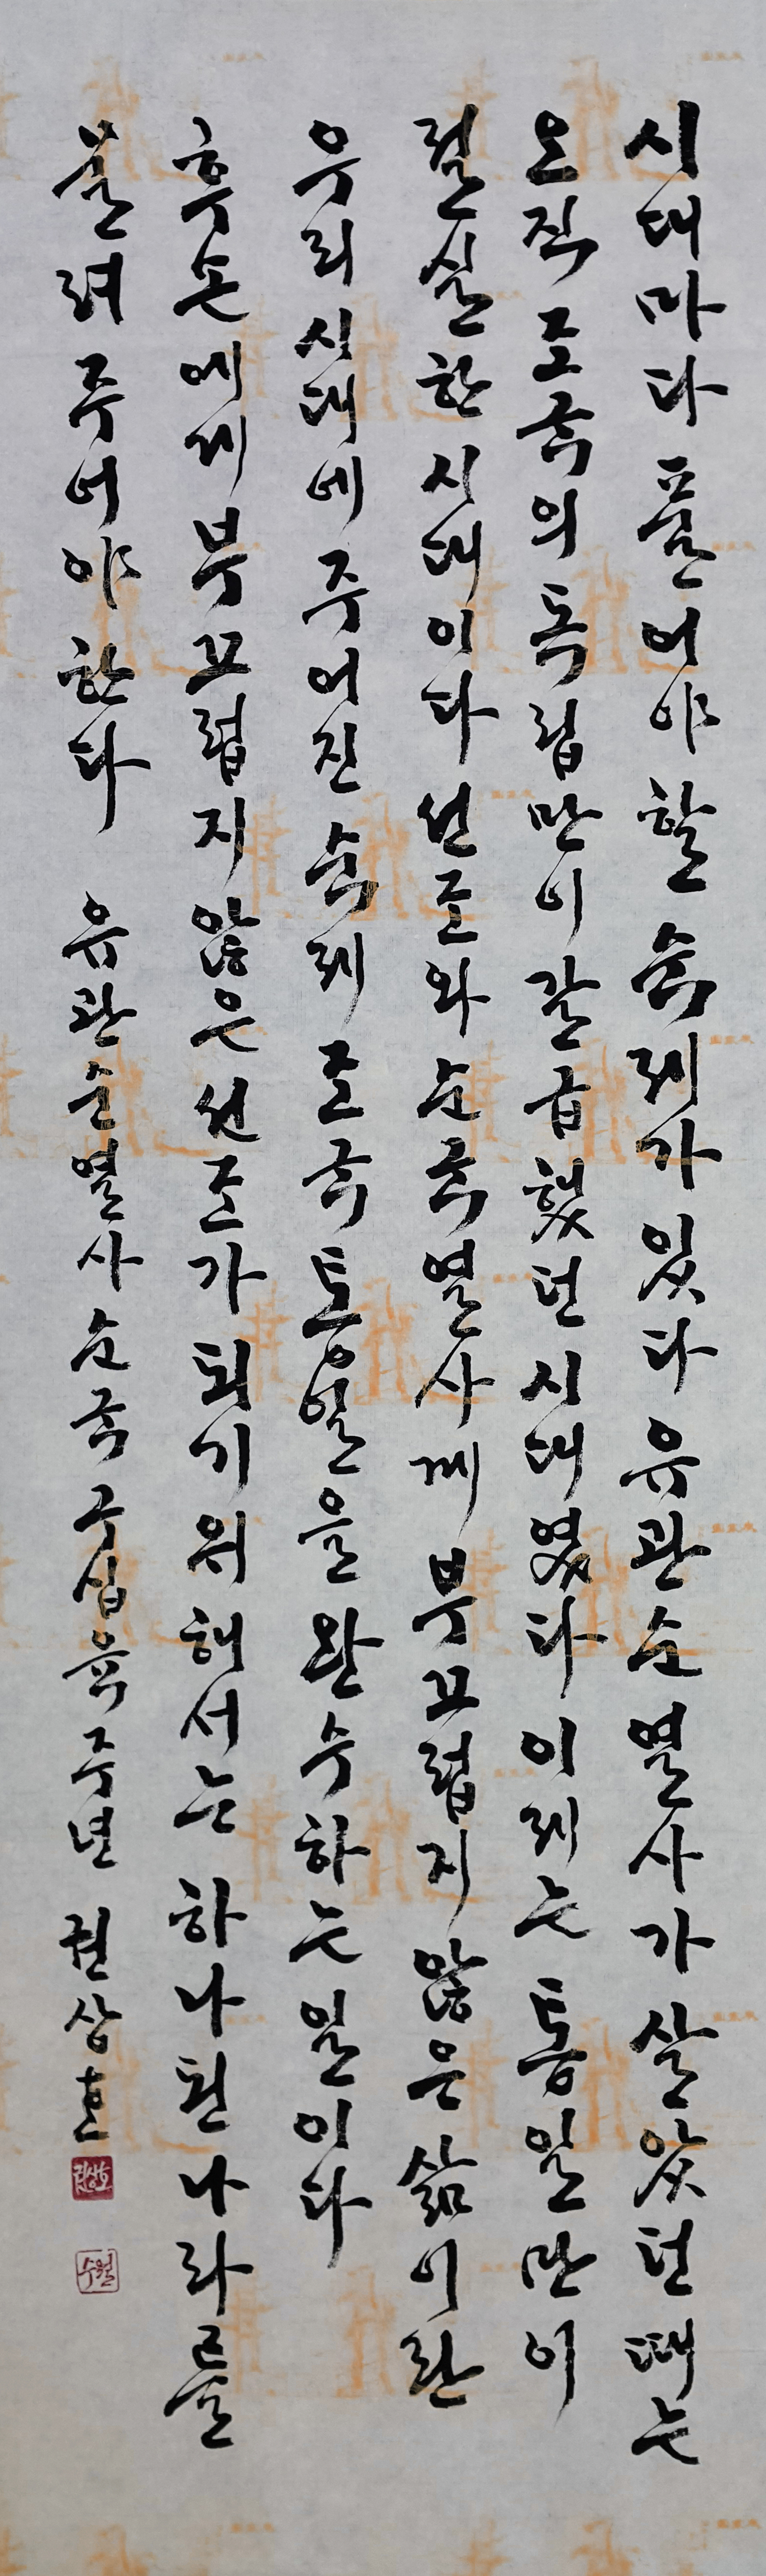 시대마다 풀어야 할 숙제가 있다 유관순 열사가 살았던 때는
오직 조국의 독립만이 갈급했던 시대였다 이제는 통일만이
절실한 시대이다 선조와 순국열사께 부끄럽지 않은 삶이란
우리 시대에 주어진 숙제 조국 통일을 완수하는 일이다
후손에게 부끄럽지 않은 선조가 되기 위해서는 하나된 나라를
물려주어야 한다 유관순 열사 순국 구십육주년 권상호
권상호
수월